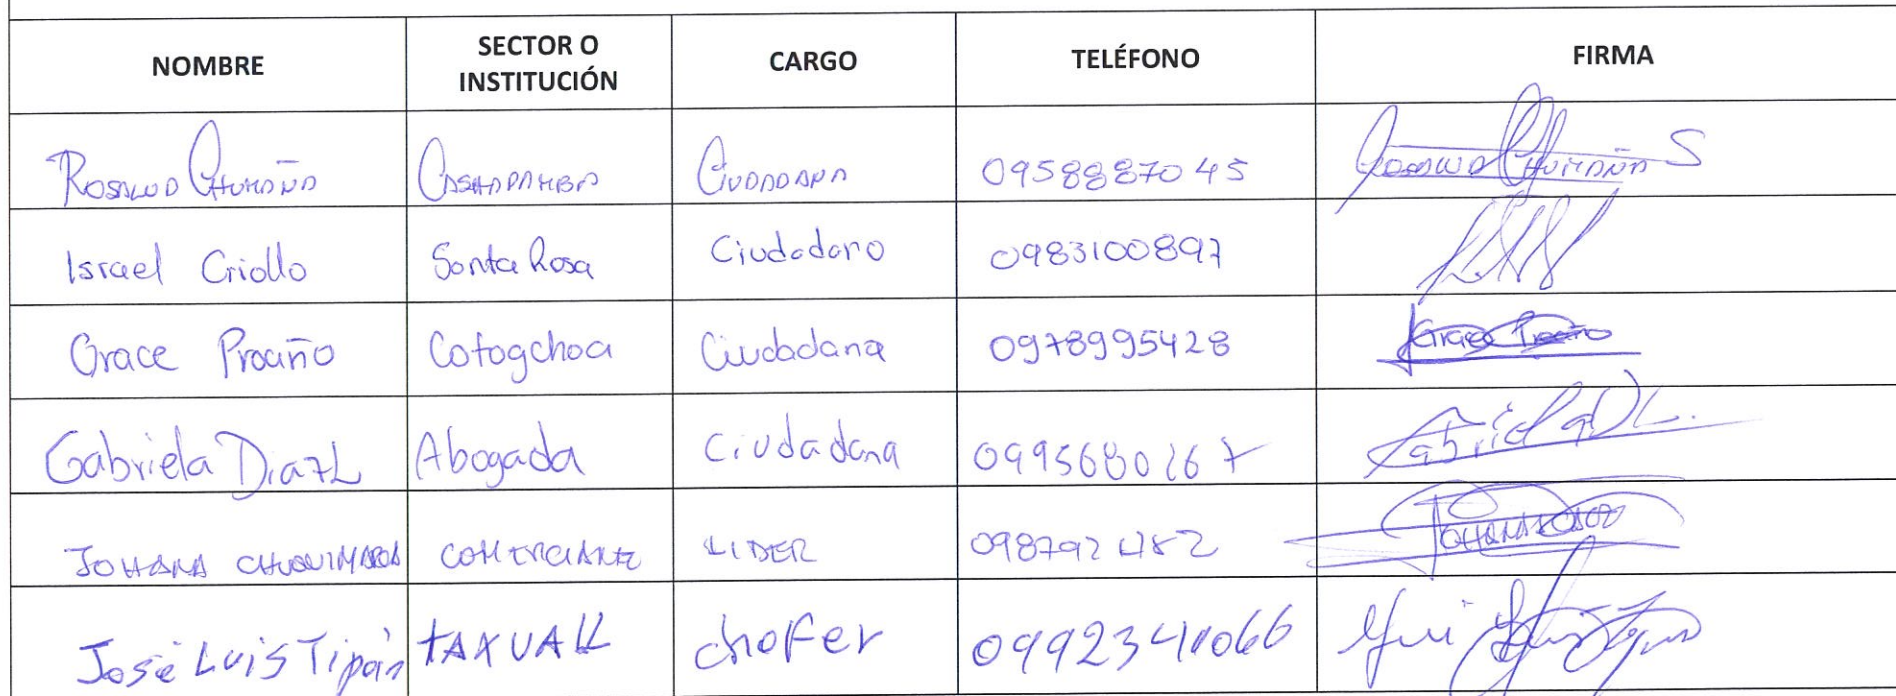 NOMBRE SECTOR O INSTITUCIÓN CARGO TELÉFONO FIRMA
Cashapamba Ciudadana 0958887045
Israel Criollo Santa Rosa Ciudadano 0983100897
Grace Proaño Cotogchoa Ciudadana 0978995428 Grace Proaño
Gabriela Diaz L Abogada Ciudadana
JOHANA COMERCIANTE LIDER 0987924182
José Luis Tipán TAXUALL chofer 0992341066